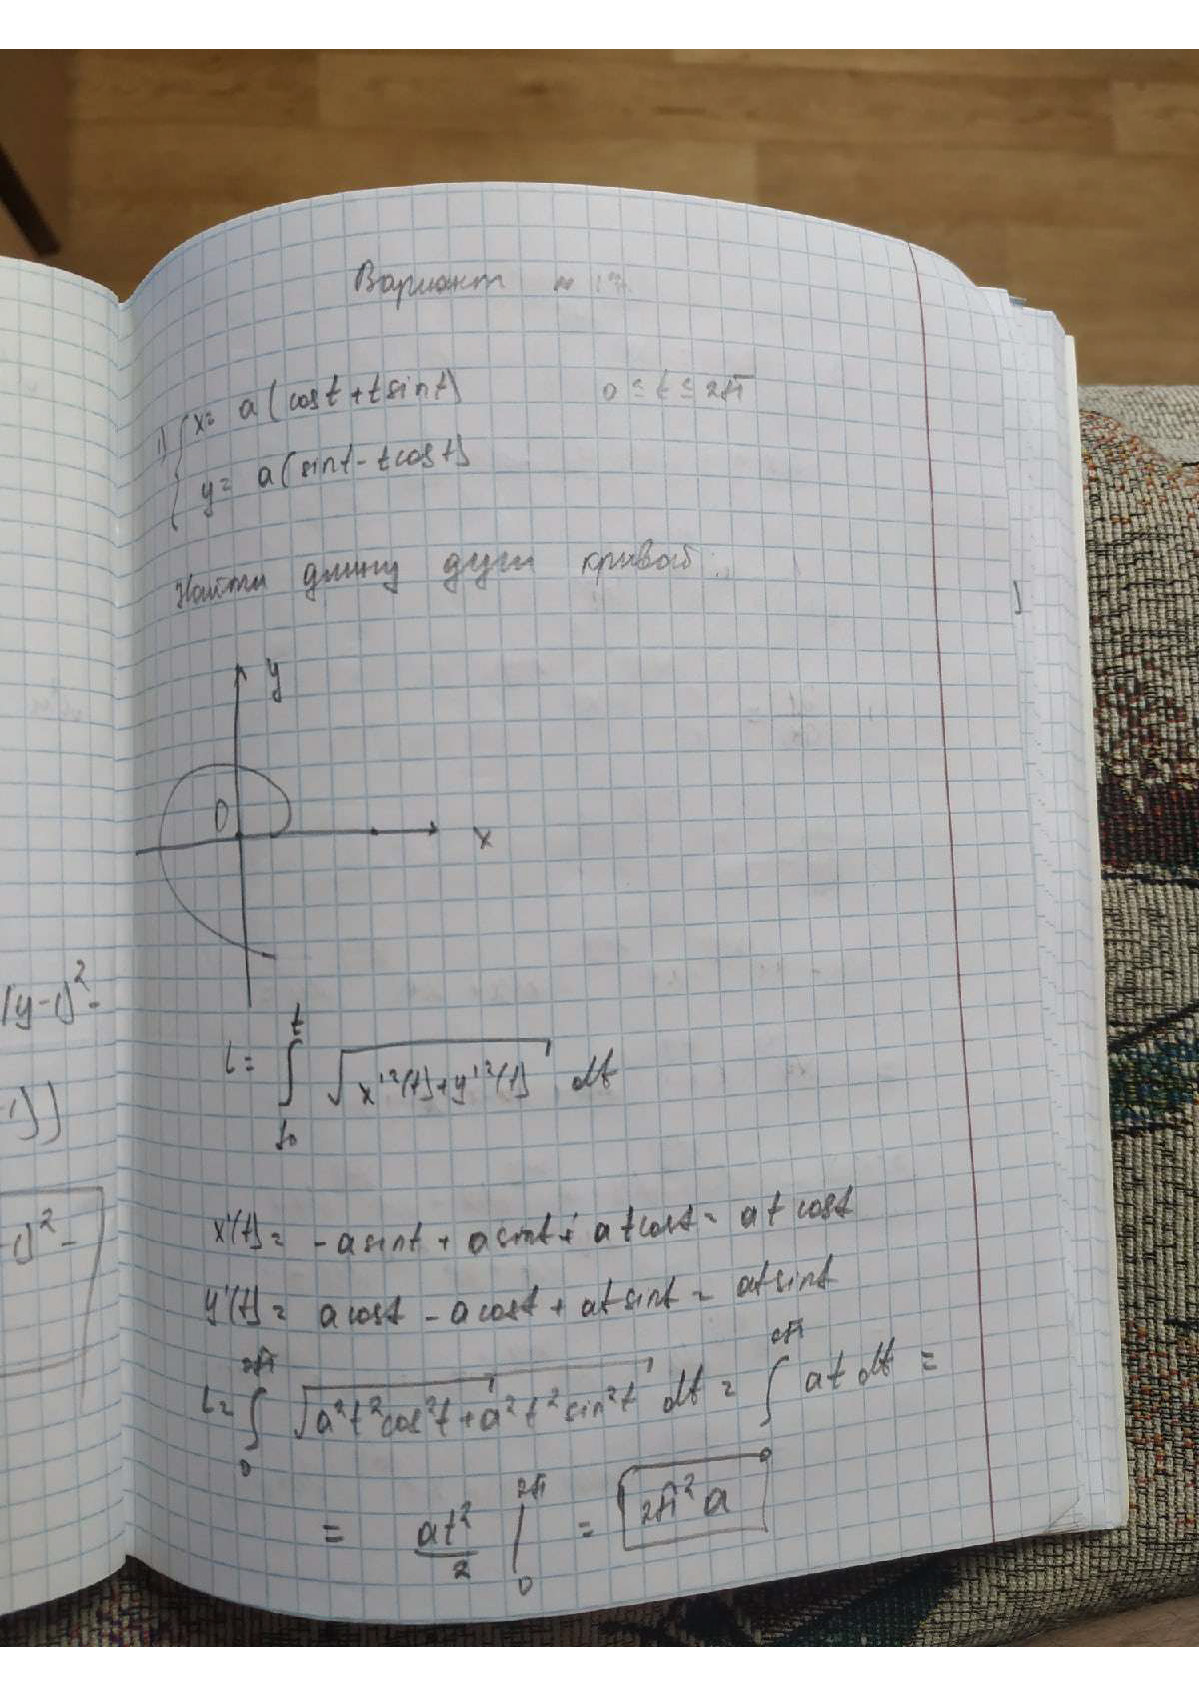 Вариант №17
1) { x = a(cost + tsint)     0 ≤ t ≤ 2π
y = a(sint - tcost)
Найти длину дуги кривой
y
0
x
(y-1)²-
-1))
-1)²-
L = ∫_{t₀}^{t} √(x'²(t)+y'²(t)) dt
x'(t) = -asint + asint + atcost = atcost
y'(t) = acost - acost + atsint = atsint
L = ∫_{0}^{2π} √(a²t²cos²t + a²t²sin²t) dt = ∫_{0}^{2π} at dt =
= at²/2 |_{0}^{2π} = 2π²a